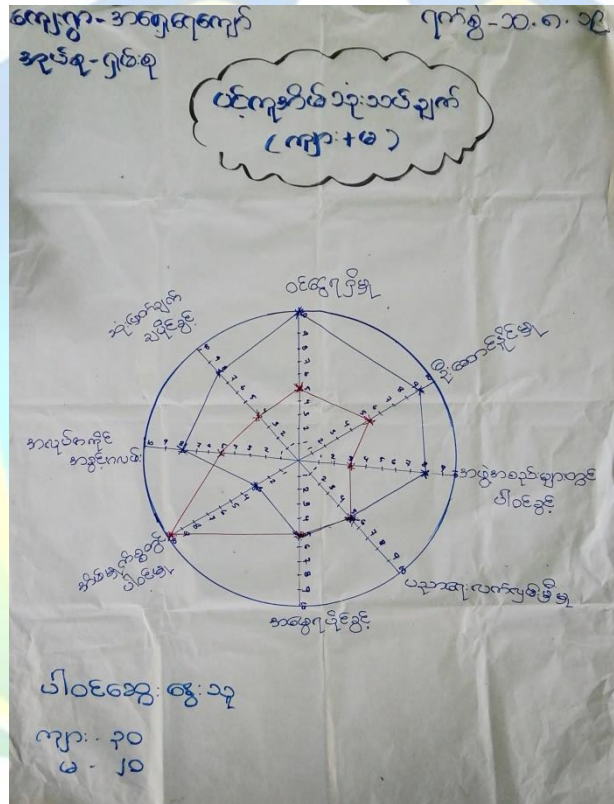 ကျေးရွာ-အရှေ့ရေကျော်
ရက်စွဲ-၁၁.၈.၁၉
အုပ်စု-ရှမ်းစု
ပင့်ကူအိမ်သုံးသပ်ချက်
(ကျား+မ)
ဝင်ငွေရရှိမှု
ဦးဆောင်နိုင်မှု
အဖွဲ့အစည်းများတွင်
ပါဝင်ခွင့်
ပညာရေးလက်လှမ်းမီမှု
အမွေရပိုင်ခွင့်
အိမ်မှုကိစ္စတွင်
ပါဝင်မှု
အလုပ်အကိုင်
အခွင့်အလမ်း
ဆုံးဖြတ်ချက်
ချပိုင်ခွင့်
ပါဝင်ဆွေးနွေးသူ
ကျား - ၃၀
မ - ၂၀